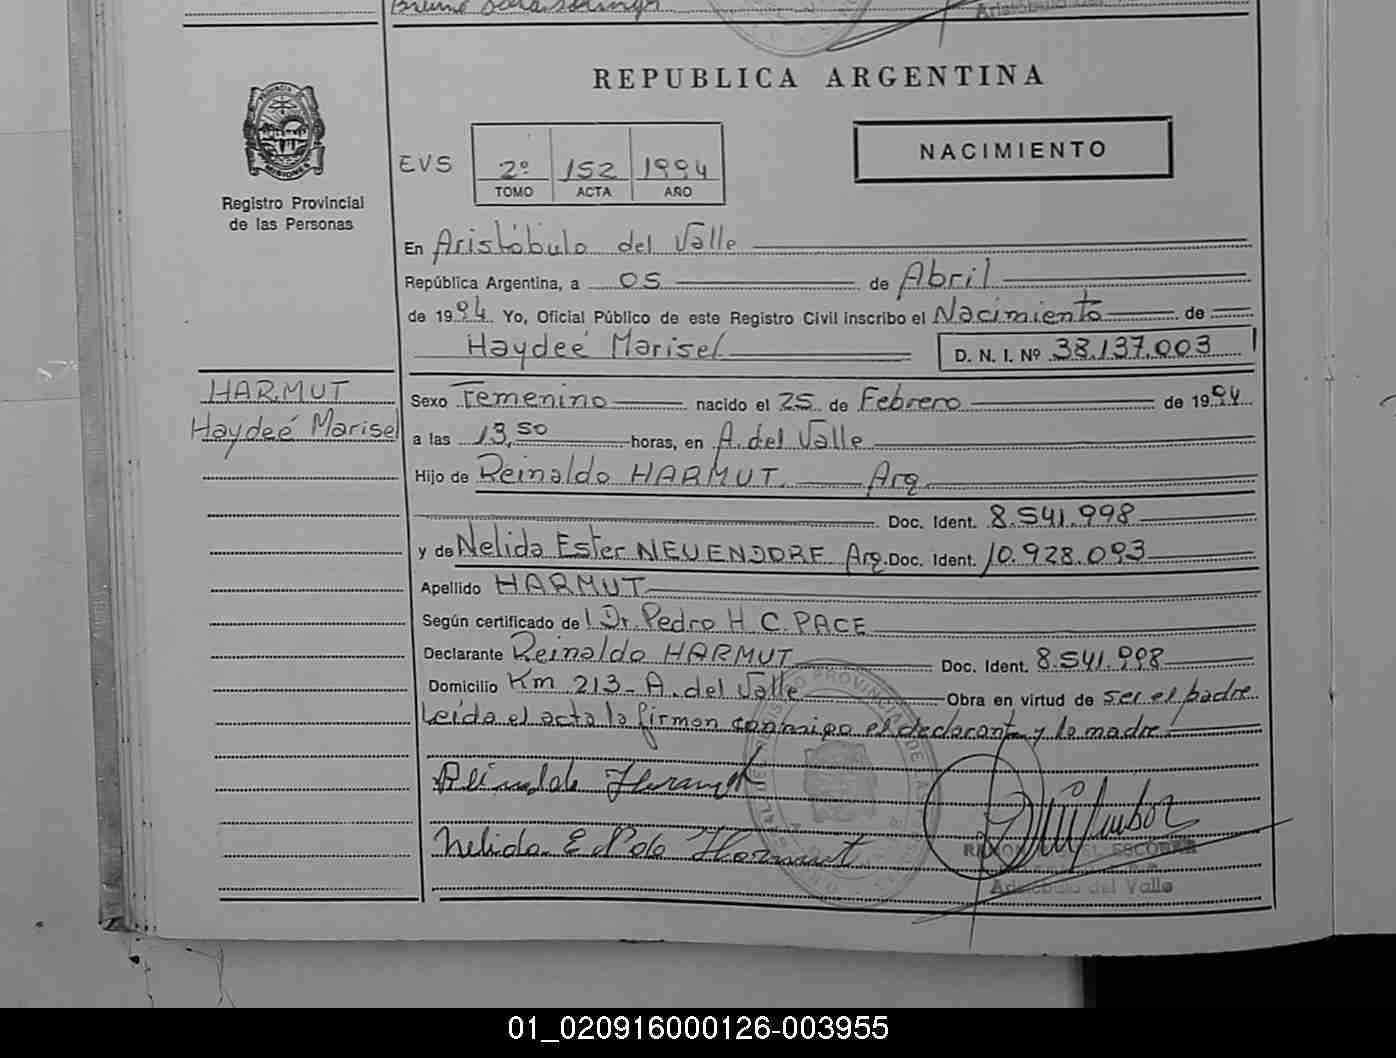 REPUBLICA ARGENTINA
PROVINCIA DE MISIONES
Registro Provincial
de las Personas
EVS
2º 152 1994
TOMO ACTA AÑO
NACIMIENTO
En Aristóbulo del Valle
República Argentina, a 05 de Abril
de 1994 Yo, Oficial Público de este Registro Civil inscribo el Nacimiento de
Haydeé Marisel D. N. I. Nº 38.137.003
HARMUT
Haydeé Marisel
Sexo Femenino nacido el 25 de Febrero de 1994
a las 13,50 horas, en A. del Valle
Hijo de Reinaldo HARMUT. Arg.
Doc. Ident. 8.541.998
y de Nelida Ester NEUENDORF Arg. Doc. Ident. 10.928.093
Apellido HARMUT
Según certificado de Dr. Pedro H. C. PACE
Declarante Reinaldo HARMUT Doc. Ident. 8.541.998
Domicilio Km 213 - A. del Valle Obra en virtud de ser el padre
Leída el acta la firman conmigo el declarante y la madre
Reinaldo Harmut
Nelida E N de Harmut
ESCOBAR
Aristóbulo del Valle
01_020916000126-003955